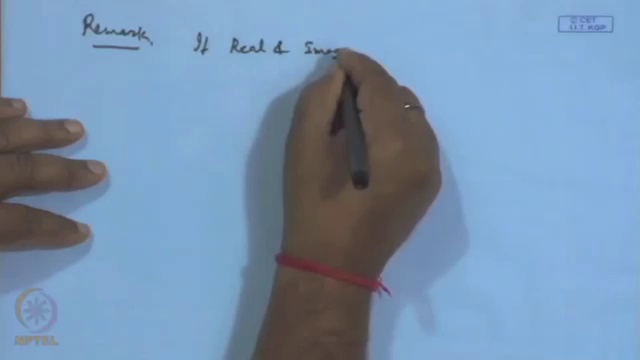 Remark If Real & Imag
© CET
I.I.T. KGP
NPTEL